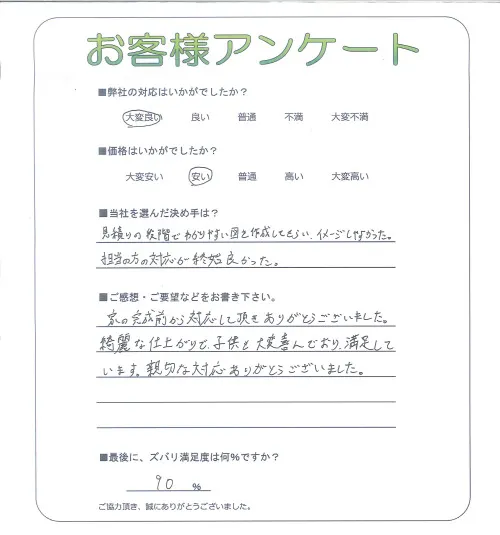 お客様アンケート
■弊社の対応はいかがでしたか？
大変良い 良い 普通 不満 大変不満
■価格はいかがでしたか？
大変安い 安い 普通 高い 大変高い
■当社を選んだ決め手は？
見積りの段階でわかりやすい図を作成してもらい、イメージしやすかった。
担当の方の対応が終始良かった。
■ご感想・ご要望などをお書き下さい。
家の完成前から対応して頂きありがとうございました。
綺麗な仕上がりで、子供も大変喜んでおり、満足して
います。親切な対応ありがとうございました。
■最後に、ズバリ満足度は何％ですか？
90 ％
ご協力頂き、誠にありがとうございました。